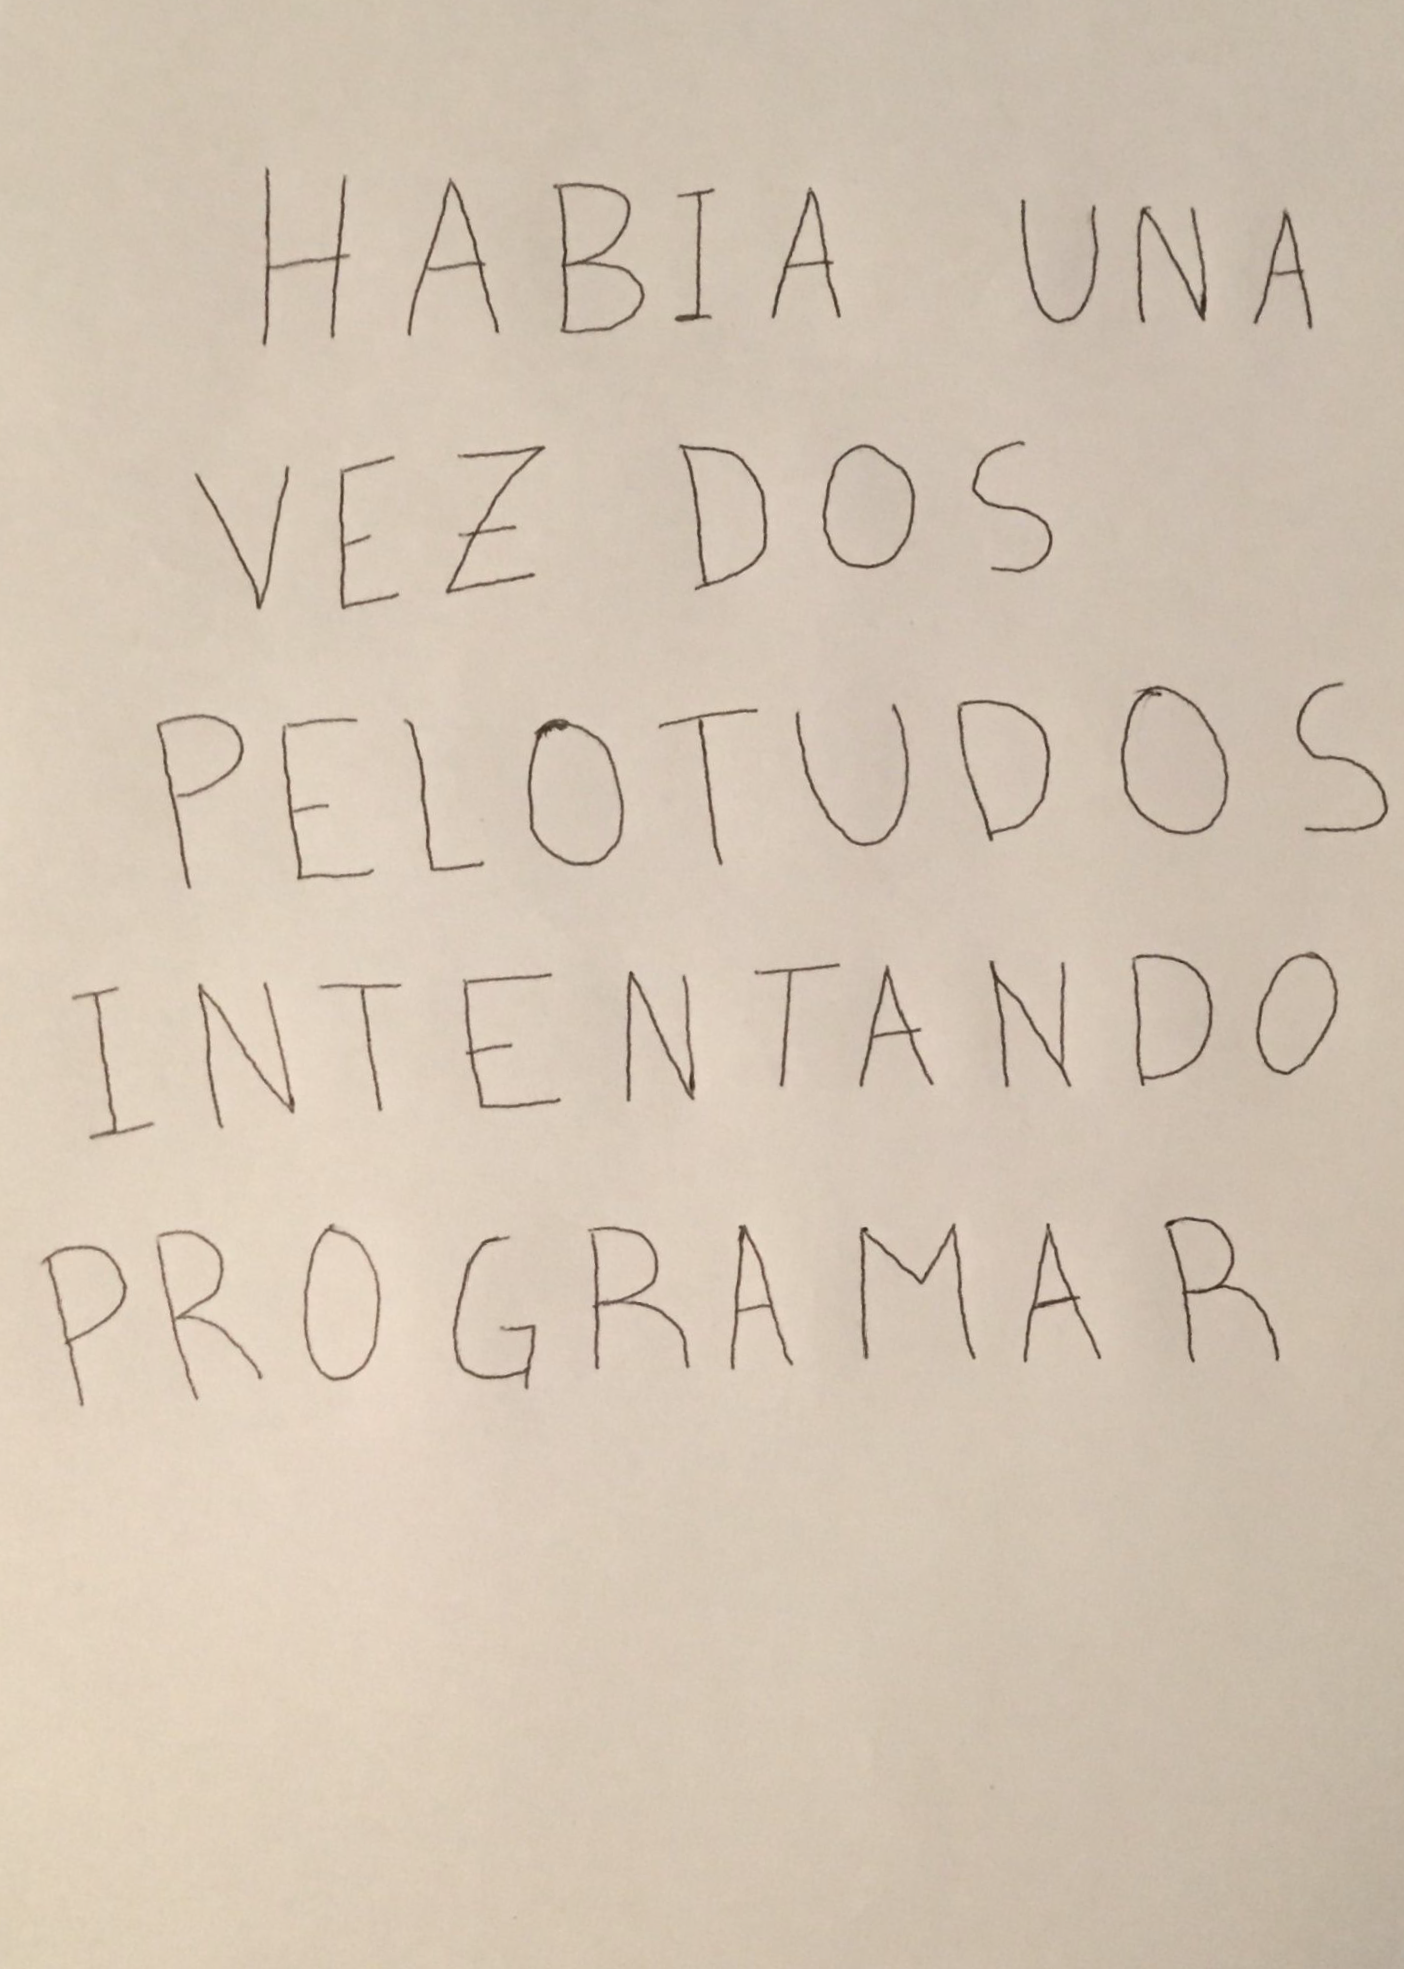 HABIA UNA
VEZ DOS
PELOTUDOS
INTENTANDO
PROGRAMAR